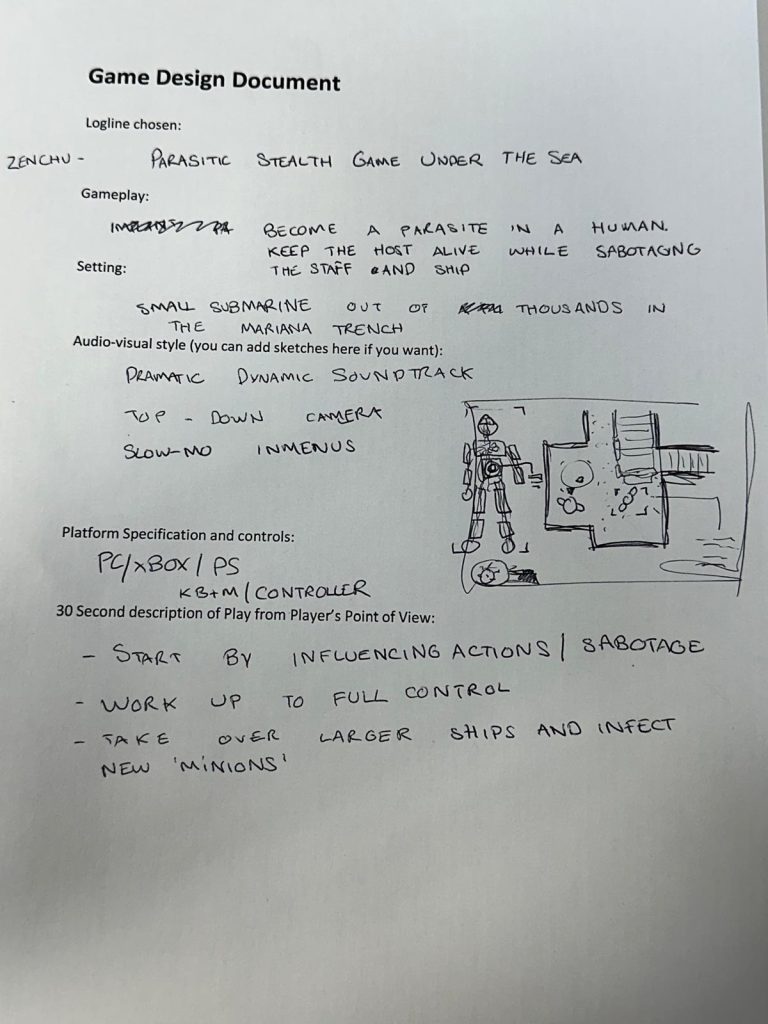 Game Design Document
Logline chosen:
ZENCHU - PARASITIC STEALTH GAME UNDER THE SEA
Gameplay:
BECOME A PARASITE IN A HUMAN.
KEEP THE HOST ALIVE WHILE SABOTAGING
Setting:
THE STAFF AND SHIP
SMALL SUBMARINE OUT OF THOUSANDS IN
THE MARIANA TRENCH
Audio-visual style (you can add sketches here if you want):
DRAMATIC DYNAMIC SOUNDTRACK
TOP - DOWN CAMERA
SLOW-MO INMENUS
Platform Specification and controls:
PC/XBOX/PS
KB+M/CONTROLLER
30 Second description of Play from Player's Point of View:
- START BY INFLUENCING ACTIONS/SABOTAGE
- WORK UP TO FULL CONTROL
- TAKE OVER LARGER SHIPS AND INFECT
NEW 'MINIONS'